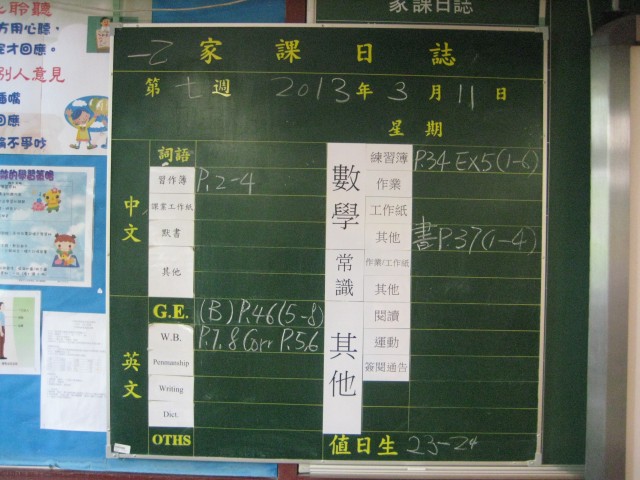 家課日誌
心聆聽
方用心聽，
才回應。
別人意見
插嘴
回應
不爭吵
一乙 家課日誌
第七週 2013年3月11日
星期
中文
詞語
習作簿 P.2-4
課業工作紙
默書
其他
英文
G.E. (B) P.46(5-8)
W.B. P.7,8 Corr P.5,6
Penmanship
Writing
Dict.
OTHS
數學
練習簿 P.34 EX5(1-6)
作業
工作紙
其他 書P.37(1-4)
常識
作業/工作紙
其他
其他
閱讀
運動
簽閱通告
值日生 23-24